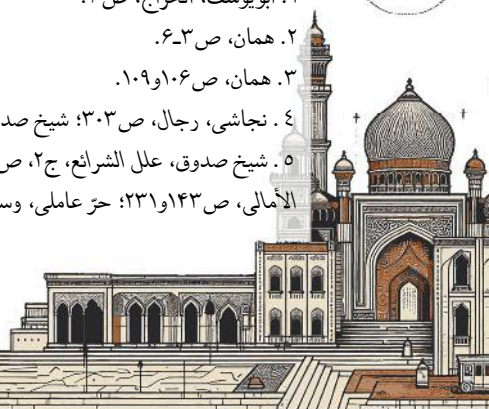 ۱. ابویوسف، الخراج، ص
۲. همان، ص۳ـ۶.
۳. همان، ص۱۰۶و۱۰۹.
٤. نجاشی، رجال، ص۳۰۳؛ شیخ صد
۵. شیخ صدوق، علل الشرائع، ج۲، ص
الأمالی، ص۱۴۳و۲۳۱؛ حرّ عاملی، وس